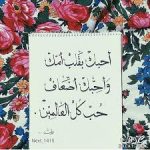 أحبك بقلب أمك
وأحبك أضعاف
حب كل العالمين